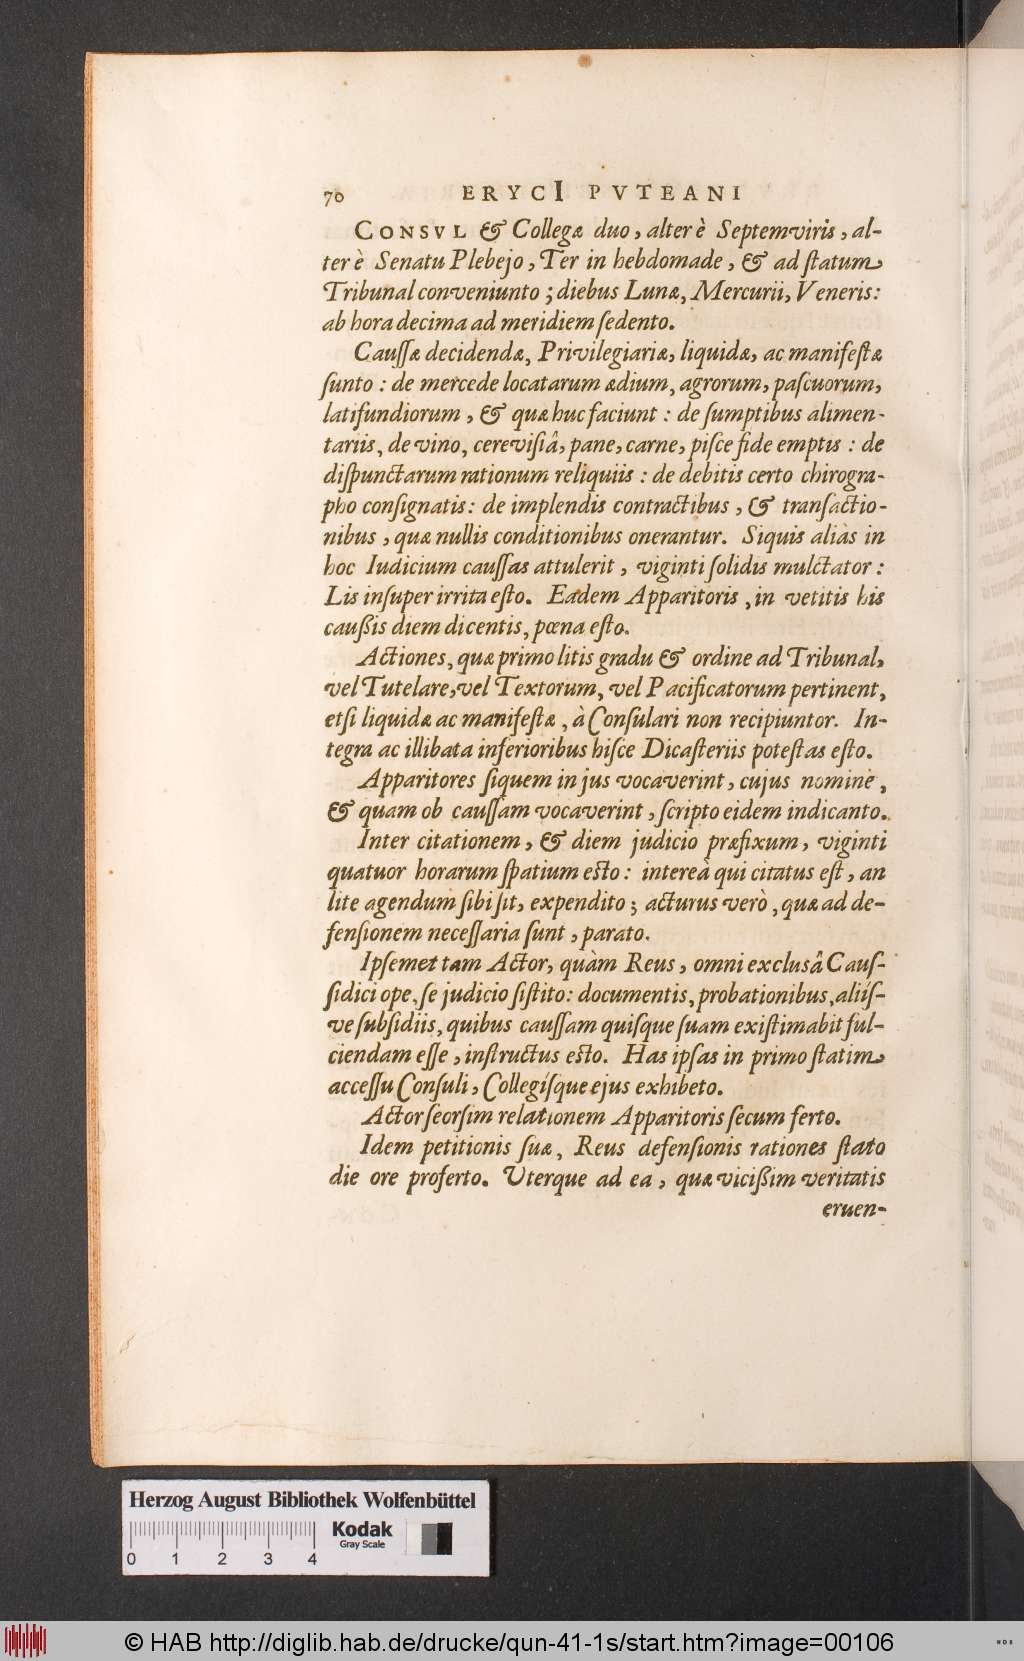 70 ERYCI PVTEANI
CONSVL & Collegæ duo, alter è Septemviris, al-
ter è Senatu Plebejo, Ter in hebdomade, & ad ſtatum
Tribunal conveniunto; diebus Lunæ, Mercurii, Veneris:
ab hora decima ad meridiem ſedento.
Cauſſæ decidendæ, Privilegiariæ, liquidæ, ac manifeſtæ
ſunto: de mercede locatarum ædium, agrorum, paſcuorum,
latifundiorum, & quæ huc faciunt: de ſumptibus alimen-
tariis, de vino, cereviſiâ, pane, carne, piſce fide emptis: de
diſpunctarum rationum reliquiis: de debitis certo chirogra-
pho conſignatis: de implendis contractibus, & tranſactio-
nibus, quæ nullis conditionibus onerantur. Siquis aliàs in
hoc Iudicium cauſſas attulerit, viginti ſolidis mulctator:
Lis inſuper irrita eſto. Eadem Apparitoris, in vetitis his
caußis diem dicentis, pœna eſto.
Actiones, quæ primo litis gradu & ordine ad Tribunal,
vel Tutelare, vel Textorum, vel Pacificatorum pertinent,
etſi liquidæ ac manifeſtæ, à Conſulari non recipiuntor. In-
tegra ac illibata inferioribus hiſce Dicaſteriis poteſtas eſto.
Apparitores ſiquem in jus vocaverint, cujus nomine,
& quam ob cauſſam vocaverint, ſcripto eidem indicanto.
Inter citationem, & diem judicio præfixum, viginti
quatuor horarum ſpatium eſto: intereà qui citatus eſt, an
lite agendum ſibi ſit, expendito; acturus verò, quæ ad de-
fenſionem neceſſaria ſunt, parato.
Ipſemet tam Actor, quàm Reus, omni excluſâ Cauſ-
ſidici ope, ſe judicio ſiſtito: documentis, probationibus, aliiſ-
ve ſubſidiis, quibus cauſſam quiſque ſuam exiſtimabit ful-
ciendam eſſe, inſtructus eſto. Has ipſas in primo ſtatim
acceſſu Conſuli, Collegíſque ejus exhibeto.
Actor ſeorſim relationem Apparitoris ſecum ferto.
Idem petitionis ſuæ, Reus defenſionis rationes ſtato
die ore proferto. Uterque ad ea, quæ vicißim veritatis
eruen-
Herzog August Bibliothek Wolfenbüttel
Kodak
Gray Scale
0 1 2 3 4
© HAB http://diglib.hab.de/drucke/qun-41-1s/start.htm?image=00106